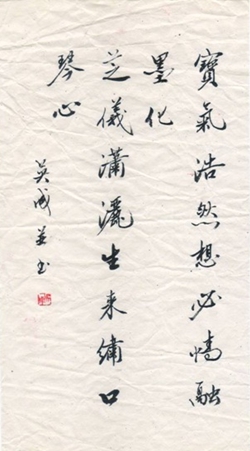 寶氣浩然想必情融
墨化
芝儀瀟灑生來繡口
琴心
英成並书